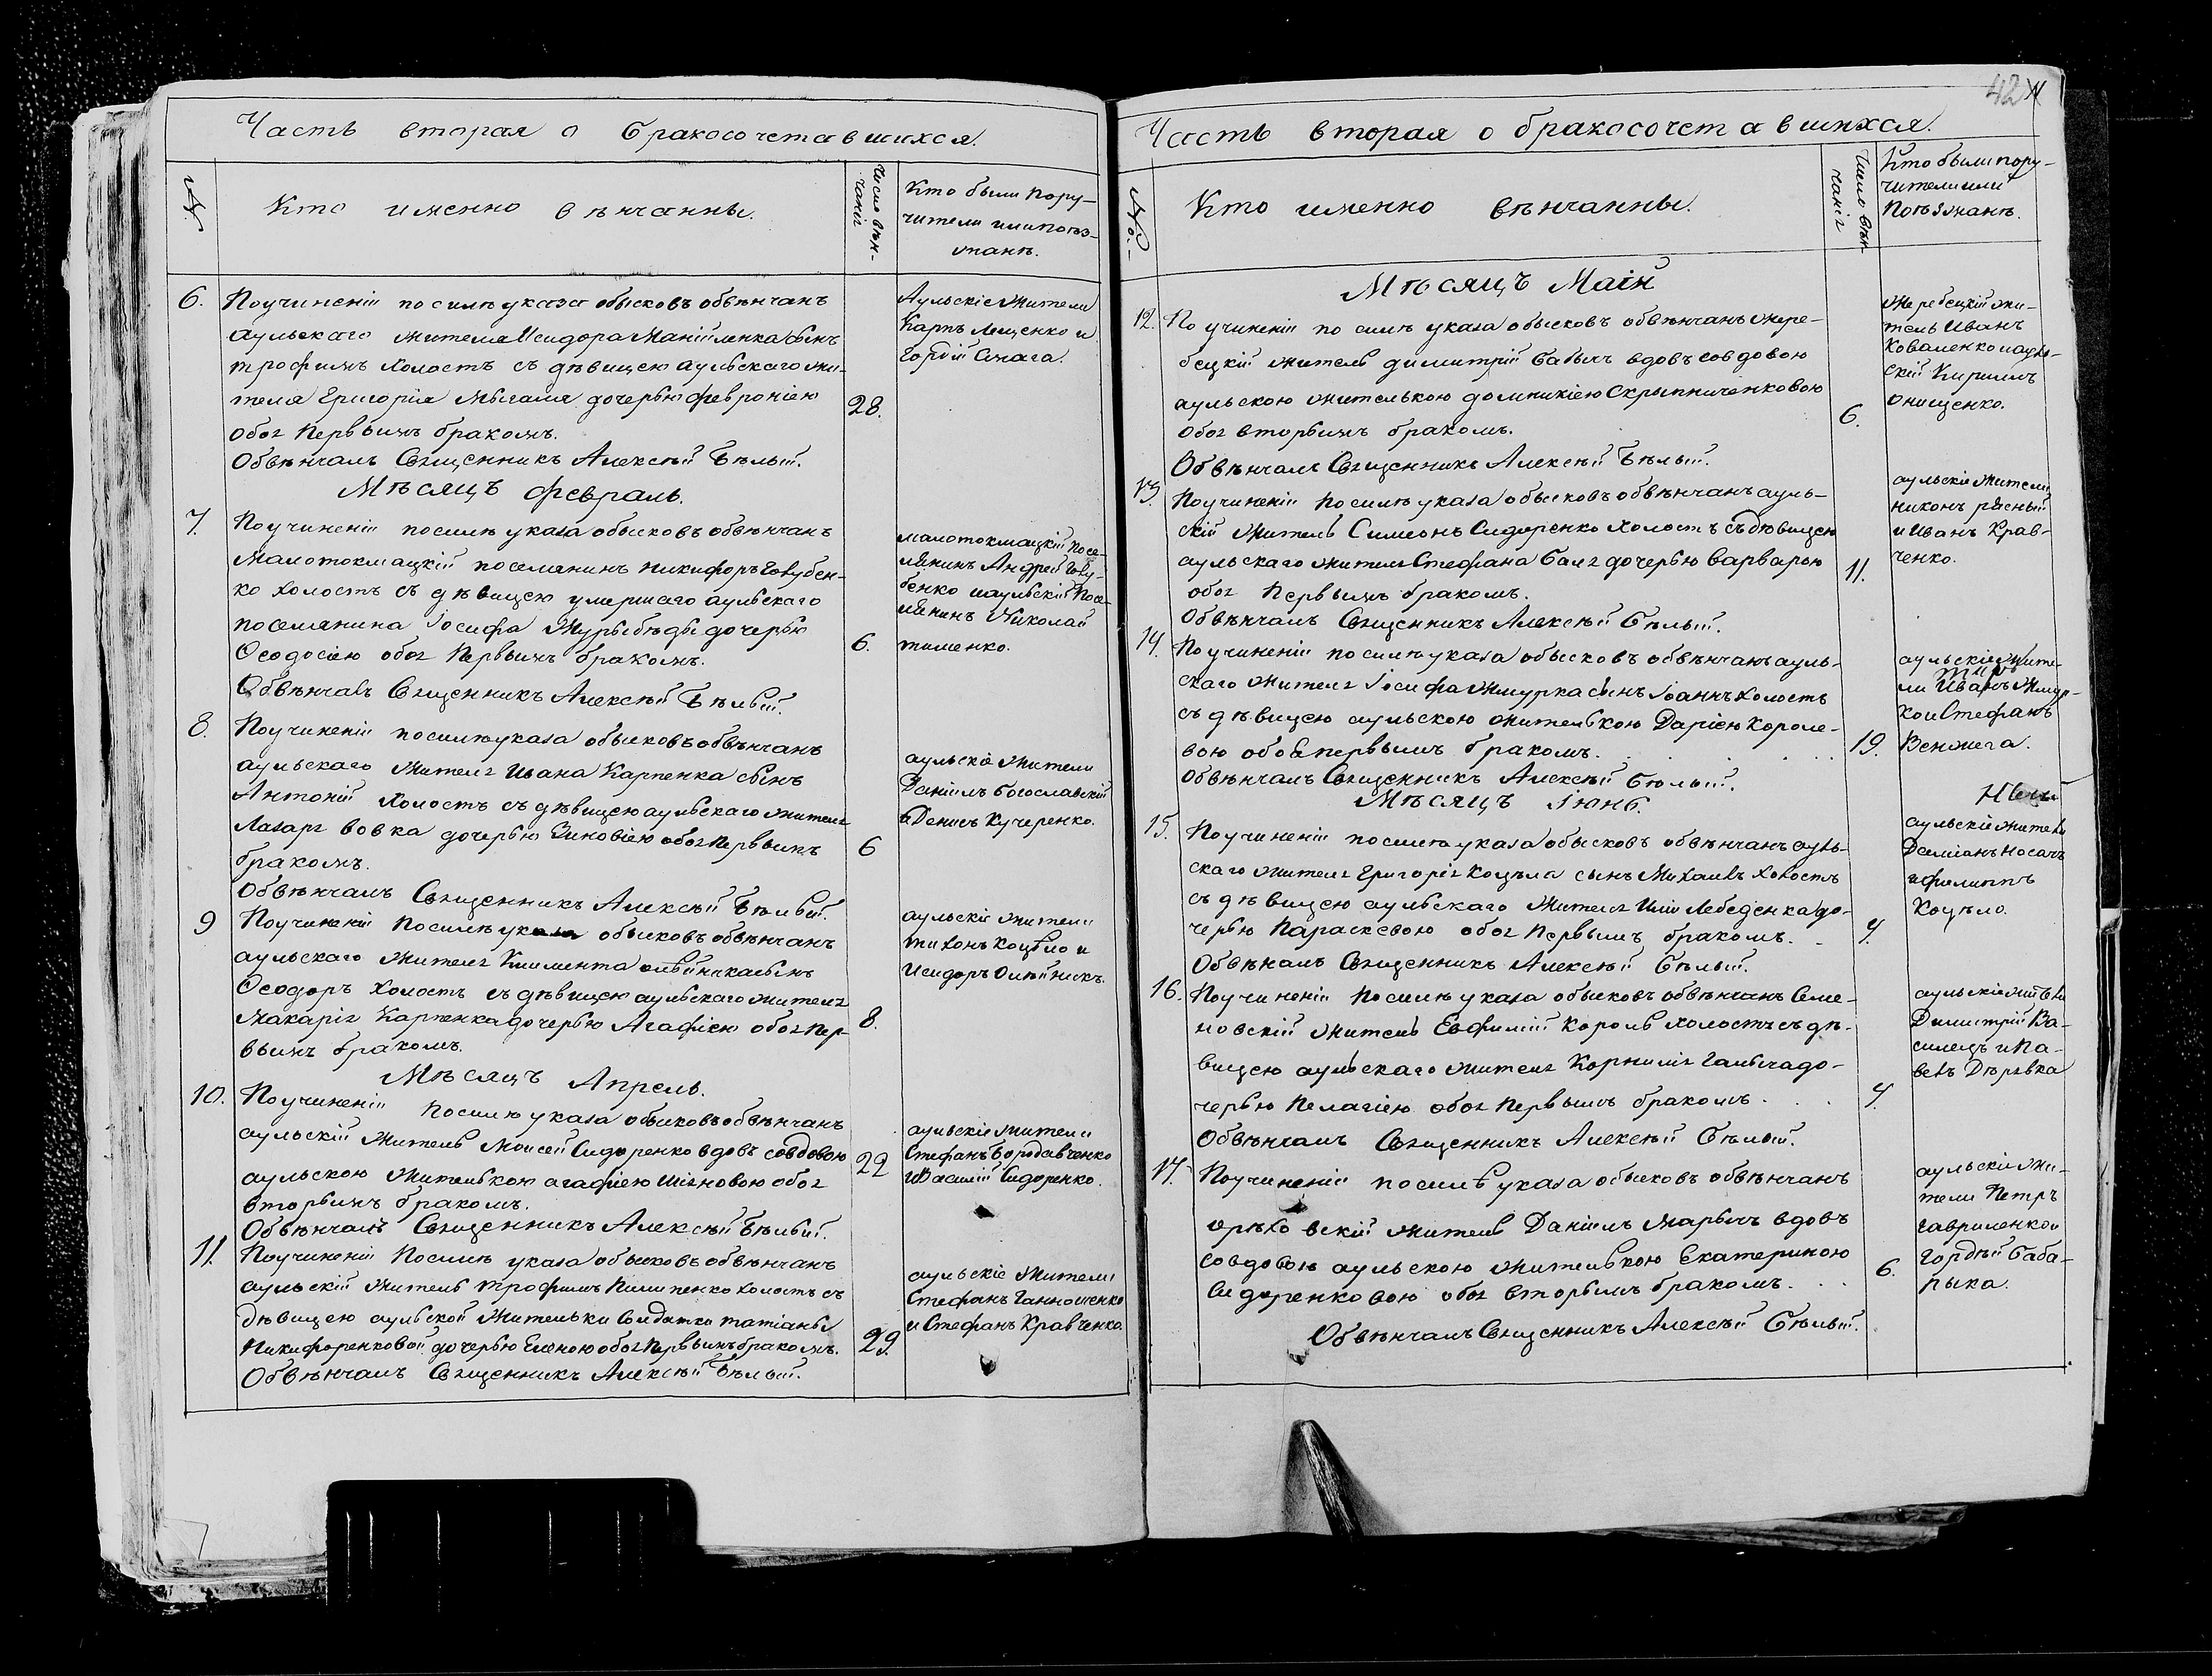 Часть вторая о бракосочетавшихся.
№
Кто именно вѣнчанны.
Число вѣн-
чанія
Кто были пору-
чители или поѣз-
жанѣ.
6. По учиненіи по силѣ указа обысковъ обвѣнчанъ
аульскаго жителя Исидора Манійленка сынъ
трофимъ холостъ съ дѣвицею аульскаго жи-
теля Григорія дочерью февроніею
обоя первымъ бракомъ.
28.
Обвѣнчалъ Священникъ Алексѣй Бѣлый.
Аульскіе жители
Карпъ Лещенко и
Гордій
Мѣсяцъ февраль.
7. По учиненіи по силѣ указа обысковъ обвѣнчанъ
Малотокмацкій поселянинъ никифоръ Голубен-
ко холостъ съ дѣвицею умершаго аульскаго
поселянина Іосифа Журыбѣды дочерью
Ѳеодосіею обоя первымъ бракомъ.
6.
Обвѣнчалъ Священникъ Алексѣй Бѣлый.
малотокмацкій посе-
лянинъ Андрей Голу-
бенко и аульскій посе-
лянинъ Николай
тименко.
8. По учиненіи по силѣ указа обысковъ обвѣнчанъ
аульскаго жителя Ивана Карпенка сынъ
Антоній холостъ съ дѣвицею аульскаго жителя
Лазаря вовка дочерью Зиновіею обоя первымъ
6
бракомъ.
Обвѣнчалъ Священникъ Алексѣй Бѣлый.
аульскіе жители
Даніилъ Богославскій
и Денисъ Кучеренко.
9 По учиненіи по силѣ указа обысковъ обвѣнчанъ
аульскаго жителя Климента олѣйника сынъ
Ѳеодоръ холостъ съ дѣвицею аульскаго жителя
Макарія Карпенка дочерью Агафіею обоя пер-
8.
вымъ бракомъ.
аульскіе жители
тихонъ Коцѣло и
Исидоръ Олѣйникъ.
Мѣсяцъ Апрель.
10. По учиненіи по силѣ указа обысковъ обвѣнчанъ
аульскій житель Моисей Сидоренко вдовъ со вдовою
аульскою жителькою агафіею обоя
22
вторымъ бракомъ.
Обвѣнчалъ Священникъ Алексѣй Бѣлый.
аульскіе жители
Стефанъ Бородавченко
и Василій Сидоренко.
11. По учиненіи по силѣ указа обысковъ обвѣнчанъ
аульскій житель трофимъ Пилипенко холостъ съ
дѣвицею аульской жительки Солдатки татіаны
Никифоренковой дочерью Еленою обоя первымъ бракомъ.
29.
Обвѣнчалъ Священникъ Алексѣй Бѣлый.
аульскіе жители
Стефанъ Ганношенко
и Стефанъ Кравченко.
42
Часть вторая о бракосочетавшихся.
№
Кто именно вѣнчанны.
Число вѣн-
чанія
Кто были пору-
чители или
поѣзжанѣ.
Мѣсяцъ Маій
12. По учиненіи по силѣ указа обысковъ обвѣнчанъ жере-
бецкій житель димитрій Бабычъ вдовъ со вдовою
аульскою жителькою домникіею Скрыпниченковою
6.
обоя вторымъ бракомъ.
Обвѣнчалъ Священникъ Алексѣй Бѣлый.
Жеребецкій жи-
тель Иванъ
Коваленко и ауль-
скій Кириллъ
Онищенко.
13. По учиненіи по силѣ указа обысковъ обвѣнчанъ ауль-
скій житель Симеонъ Сидоренко холостъ съ дѣвицею
аульскаго жителя Стефана дочерью варварою
11.
обоя первымъ бракомъ.
Обвѣнчалъ Священникъ Алексѣй Бѣлый.
аульскіе жители
никонъ рясный
и Иванъ Крав-
ченко.
14. По учиненіи по силѣ указа обысковъ обвѣнчанъ ауль-
скаго жителя Іосифа Жмурка сынъ Іоаннъ холостъ
съ дѣвицею аульскою жителькою Даріею Короле-
вою обоя первымъ бракомъ.
19.
Обвѣнчалъ Священникъ Алексѣй Бѣлый.
аульскіе жите-
ли Иванъ Жмур-
ко и Стефанъ
Венжега.
Мѣсяцъ Іюнь.
15. По учиненіи по силѣ указа обысковъ обвѣнчанъ ауль-
скаго жителя Григорія Коцѣла сынъ Михаилъ холостъ
съ дѣвицею аульскаго жителя Иліи Лебеденка до-
черью Параскевою обоя первымъ бракомъ.
4.
Обвѣнчалъ Священникъ Алексѣй Бѣлый.
аульскіе жители
Даміанъ Носачъ
и филиппъ
Коцѣло.
16. По учиненіи по силѣ указа обысковъ обвѣнчанъ Семе-
новскій житель Евфимій Король холостъ съ дѣ-
вицею аульскаго жителя Корнилія до-
черью Пелагіею обоя первымъ бракомъ.
4.
Обвѣнчалъ Священникъ Алексѣй Бѣлый.
аульскіе жители
Димитрій Ва-
силецъ и Па-
велъ Дюрявка
17. По учиненіи по силѣ указа обысковъ обвѣнчанъ
орѣховскій житель Даніилъ вдовъ
со вдовою аульскою жителькою Екатериною
Сидоренковою обоя вторымъ бракомъ.
6.
Обвѣнчалъ Священникъ Алексѣй Бѣлый.
аульскіе жи-
тели Петръ
гавриленко и
гордѣй Баба-
ныка.